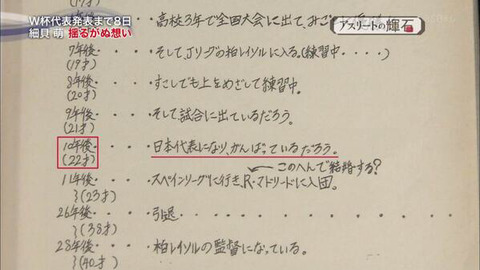 W杯代表発表まで8日
細貝 萌 揺るがぬ想い
アスリートの輝石
(17才)
6年後・・・・高校3年で全国大会に出て、みご
(18才)
7年後・・・・そしてJリーグの柏レイソルに入る。(練習中・・・・)
(19才)
8年後・・・・すこしでも上をめざして練習中。
(20才)
9年後・・・・そして試合に出ているだろう。
(21才)
10年後・・・・日本代表になり、がんばっているだろう。
(22才)
このへんで結婚する?
11年後・・・・スペインリーグに行き、R・マドリードに入団。
〜(23才)
26年後・・・・引退・・・・・・・・・・・・
〜(38才)
28年後・・・・柏レイソルの監督になっている。
〜(40才)